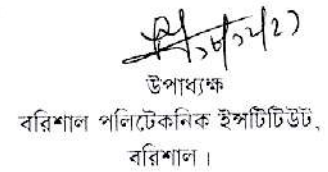 ১৮/১২/২১
উপাধ্যক্ষ
বরিশাল পলিটেকনিক ইন্সটিটিউট,
বরিশাল।